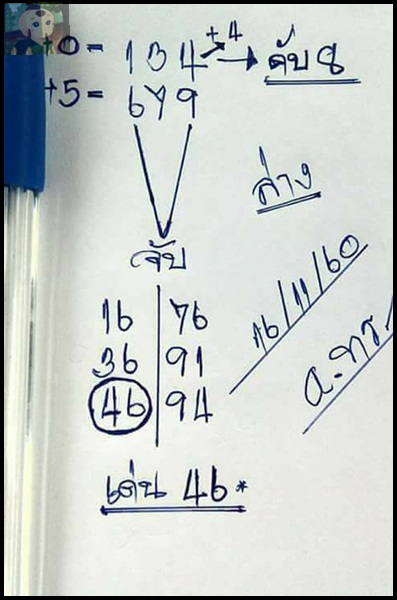 +0 = 134 +4 → ดับ 8
+5 = 679
ล่าง
จับ
16 | 76
36 | 91
46 | 94
16/11/60
อ.ทร.
เด่น 46*